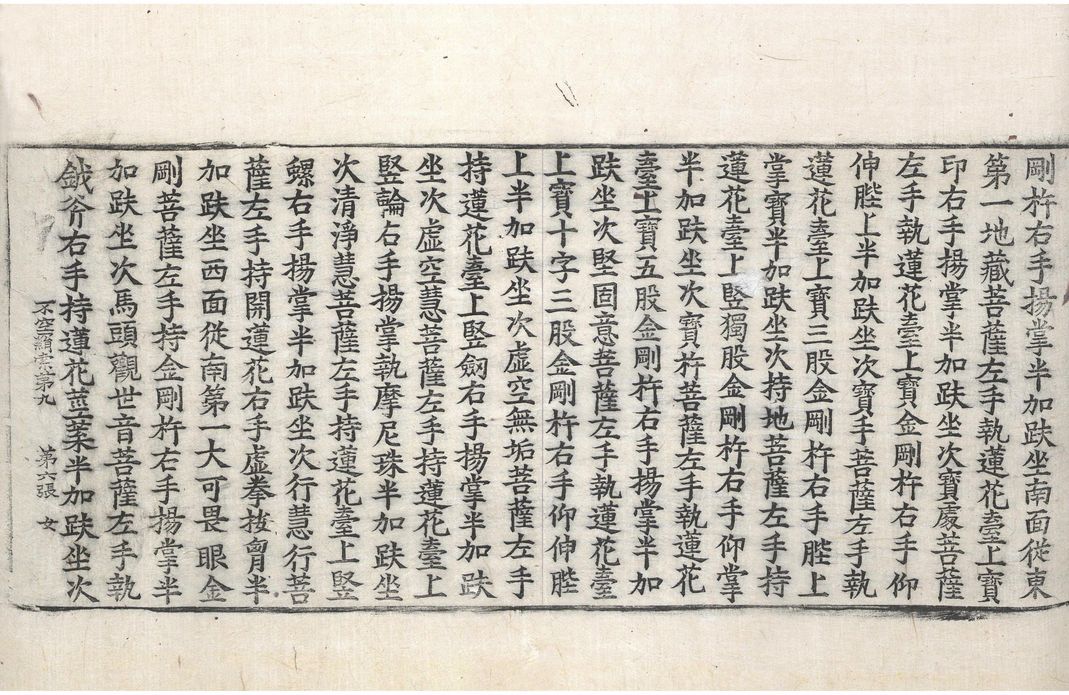 剛杵右手揚掌半加趺坐南面從東
第一地藏菩薩左手執蓮花臺上寶
印右手揚掌半加趺坐次寶處菩薩
左手執蓮花臺上寶金剛杵右手仰
伸䏶上半加趺坐次寶手菩薩左手執
蓮花臺上寶三股金剛杵右手䏶上
掌寶半加趺坐次持地菩薩左手持
蓮花臺上竪獨股金剛杵右手仰掌
半加趺坐次寶杵菩薩左手執蓮花
臺上寶五股金剛杵右手揚掌半加
趺坐次堅固意菩薩左手執蓮花臺
上寶十字三股金剛杵右手仰伸䏶
上半加趺坐次虛空無垢菩薩左手
持蓮花臺上竪劒右手揚掌半加趺
坐次虛空慧菩薩左手持蓮花臺上
竪輪右手揚掌執摩尼珠半加趺坐
次清淨慧菩薩左手持蓮花臺上竪
螺右手揚掌半加趺坐次行慧行菩
薩左手持開蓮花右手虛拳拔胷半
加趺坐西面從南第一大可畏眼金
剛菩薩左手持金剛杵右手揚掌半
加趺坐次馬頭觀世音菩薩左手執
鉞斧右手持蓮花莖葉半加趺坐次
不空羂索第九 第六張 女